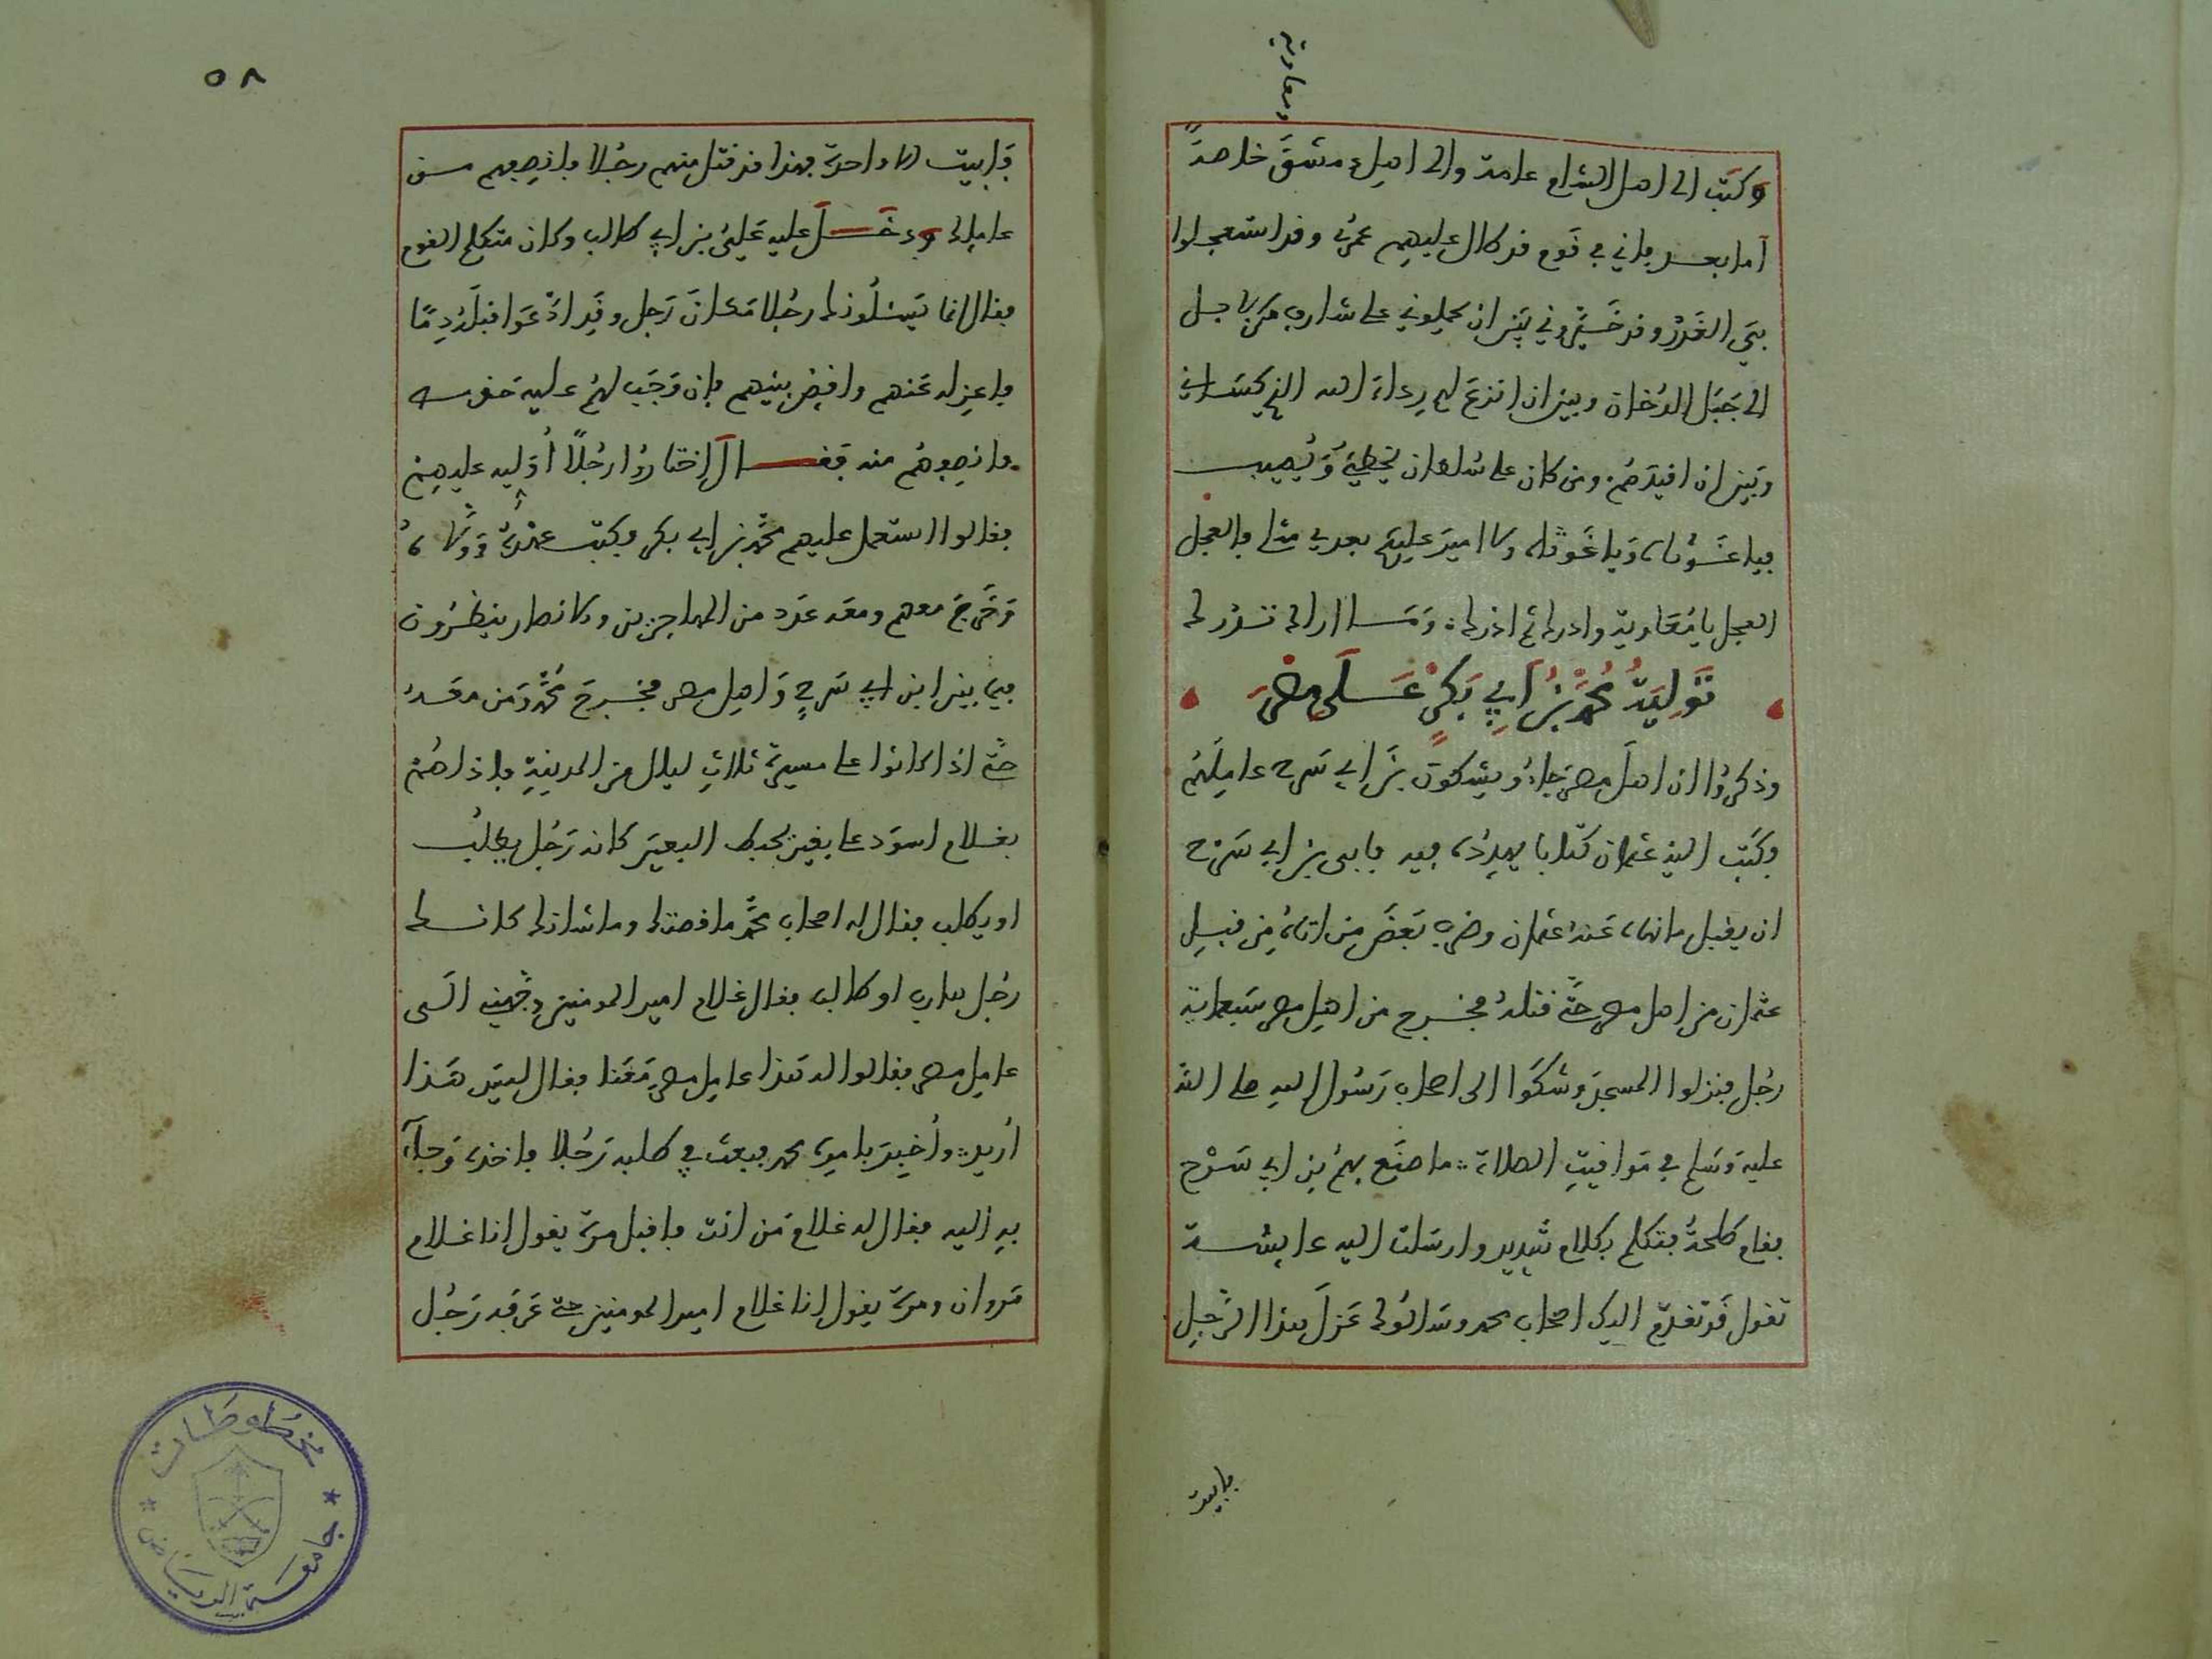 ومعاوية
وكتب الى اهل الشام عامة والى اهل دمشق خاصة
اما بعد فاني في قوم قد طال عليهم عمري وقد استعجلوا
في القدر وقد خيروني بين ان يحملوني على شارف من الابل
الى جبل الدخان وبين ان انزع لهم رداء الله الذي كساني
وبين ان اقيدهم ومن كان على سلطان يخطئ ويصيب
فيا غوثاه ويا غوثاه ولا امير عليكم بعدي مثلي فالعجل
العجل يا معاوية وادرك ثم ادرك وما اراك تدرك
تولية محمد بن ابي بكر على مصر
وذكروا ان اهل مصر جاءو يشكون بن ابي سرح عاملهم
فكتب اليه عثمان كتابا يهدده فيه فابى بن ابي سرح
ان يقبل ما نهاه عنه عثمان وضرب بعض من اتاه من قبل
عثمان من اهل مصر حتى قتله فخرج من اهل مصر سبعماية
رجل فنزلوا المسجد وشكوا الى اصحاب رسول الله صلى الله
عليه وسلم في مواقيت الصلاة ما صنع بهم بن ابي سرح
فقام طلحة فتكلم بكلام شديد وارسلت اليه عايشة
تقول قد تقدم اليك اصحاب محمد وسالوك عزل هذا الرجل
فابيت
٥٨
فابيت الا واحدة فهذا قد قتل منهم رجلا فانصفهم من
عاملك ودخل عليه علي بن ابي طالب وكان متكلم القوم
فقال انما يسئلونك رجلا مكان رجل وقد ادعوا قبله دما
فاعزله عنهم واقض بينهم فان وجب لهم عليه حق
فانصفهم منه فقال اختاروا رجلا اوليه عليهم
فقالوا استعمل عليهم محمد بن ابي بكر فكتب عهده وولاه
وخرج معهم ومعه عدد من المهاجرين والانصار ينظرون
فيما بين ابن ابي سرح واهل مصر فخرج محمد ومن معه
حتى اذا كانوا على مسيرة ثلاث ليال من المدينة فاذا هم
بغلام اسود على بعير يخبط البعير كانه رجل يطلب
او يطلب فقال له اصحاب محمد ما قصتك وما شانك كانك
رجل هارب او طالب فقال غلام امير المومنين وجهني الى
عامل مصر فقالوا له هذا عامل مصر معنا فقال ليس هذا
اريد واخبر بامره محمد فبعث في طلبه رجلا فاخذه وجاء
به اليه فقال له غلام من انت فاقبل مرة يقول انا غلام
مروان ومرة يقول انا غلام امير المومنين حتى عرفه رجل
مخطوطات
جامعة الرياض